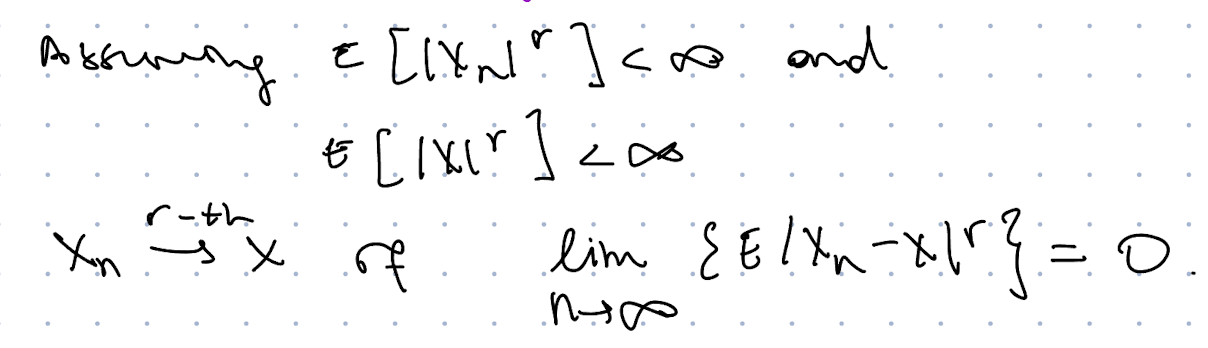 Assuming E[|Xn|^r] < ∞ and
E[|X|^r] < ∞
Xn →^{r-th} X if lim_{n→∞} {E|Xn-X|^r} = 0.